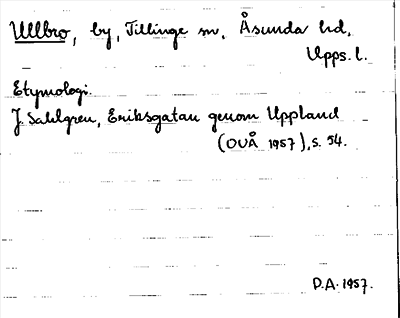 Ullbro, by, Tillinge sn, Åsunda hd,
Upps. l.
Etymologi.
J. Sahlgren, Eriksgatan genom Uppland
(OUÅ 1957), s. 54.
D.A. 1957.